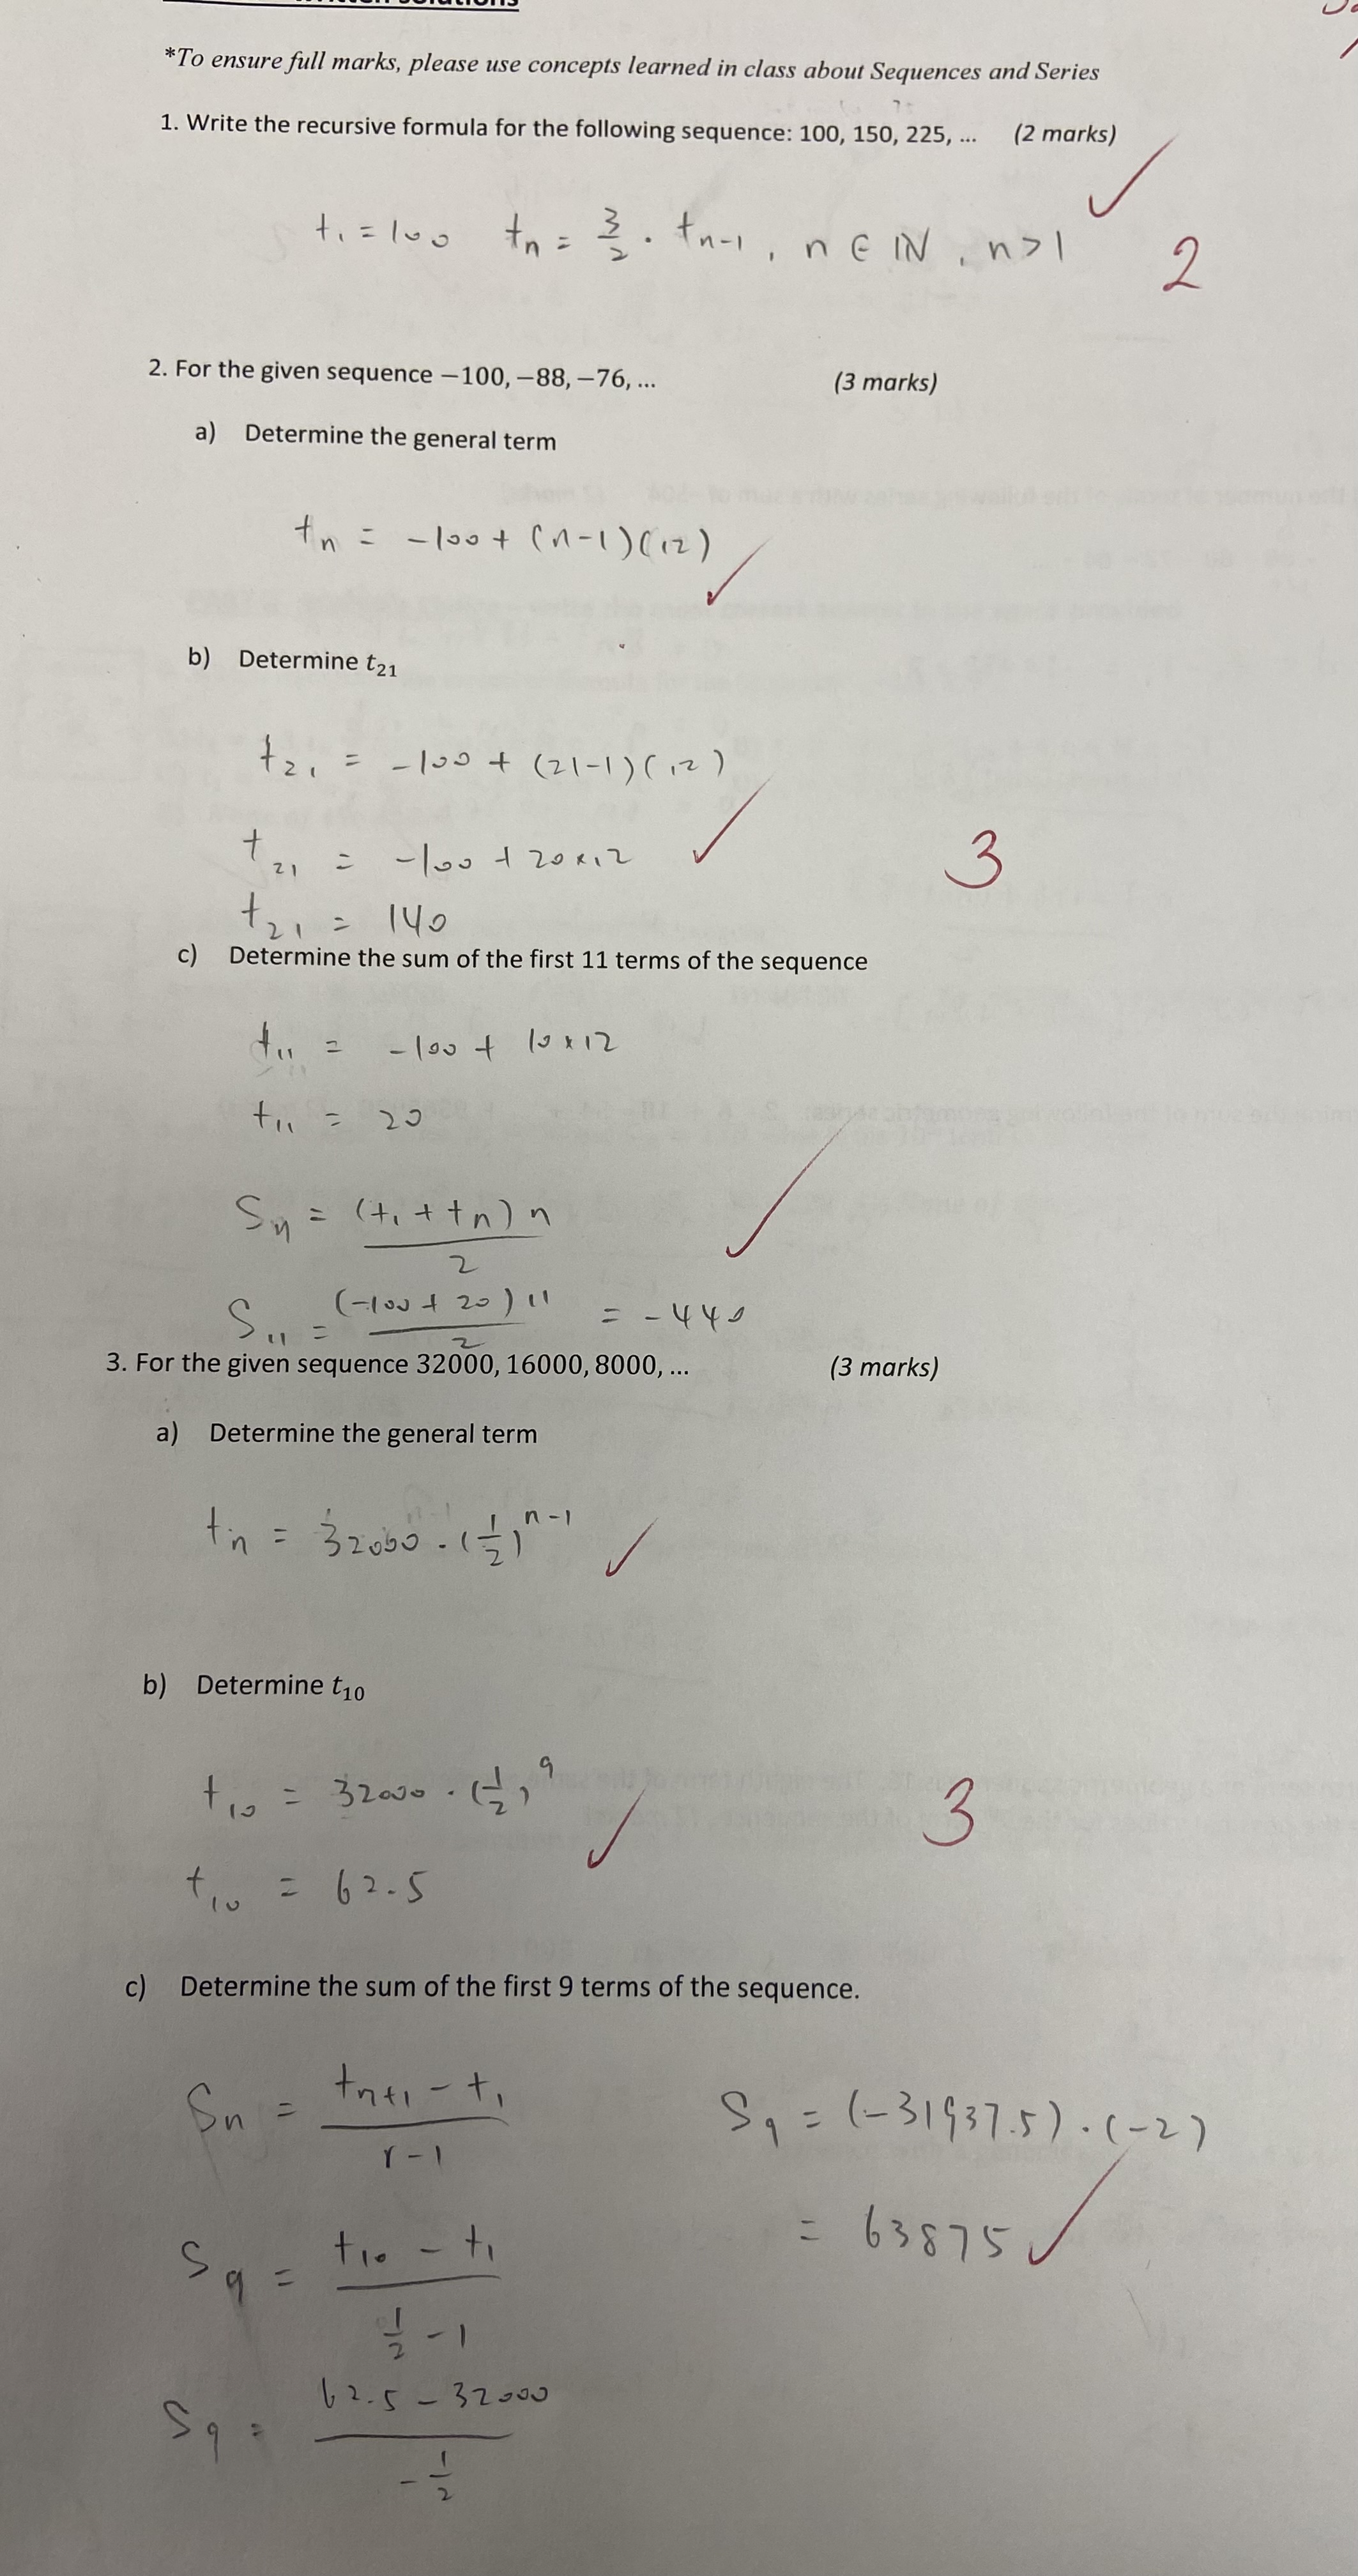 written solutions
*To ensure full marks, please use concepts learned in class about Sequences and Series
1. Write the recursive formula for the following sequence: 100, 150, 225, ... (2 marks)
t₁ = 100 tₙ = 3/2 · tₙ₋₁, n ∈ ℕ, n > 1
2
2. For the given sequence −100, −88, −76, ... (3 marks)
a) Determine the general term
tₙ = -100 + (n-1)(12)
b) Determine t₂₁
t₂₁ = -100 + (21-1)(12)
t₂₁ = -100 + 20×12
3
t₂₁ = 140
c) Determine the sum of the first 11 terms of the sequence
t₁₁ = -100 + 10×12
t₁₁ = 20
Sₙ = (t₁ + tₙ)n / 2
S₁₁ = (-100 + 20)11 / 2 = -440
3. For the given sequence 32000, 16000, 8000, ... (3 marks)
a) Determine the general term
tₙ = 32000 · (1/2)ⁿ⁻¹
b) Determine t₁₀
t₁₀ = 32000 · (1/2)⁹
3
t₁₀ = 62.5
c) Determine the sum of the first 9 terms of the sequence.
Sₙ = (tₙ₊₁ - t₁) / (r - 1)
S₉ = (-31937.5) · (-2)
= 63875
S₉ = (t₁₀ - t₁) / (1/2 - 1)
S₉ = (62.5 - 32000) / (-1/2)